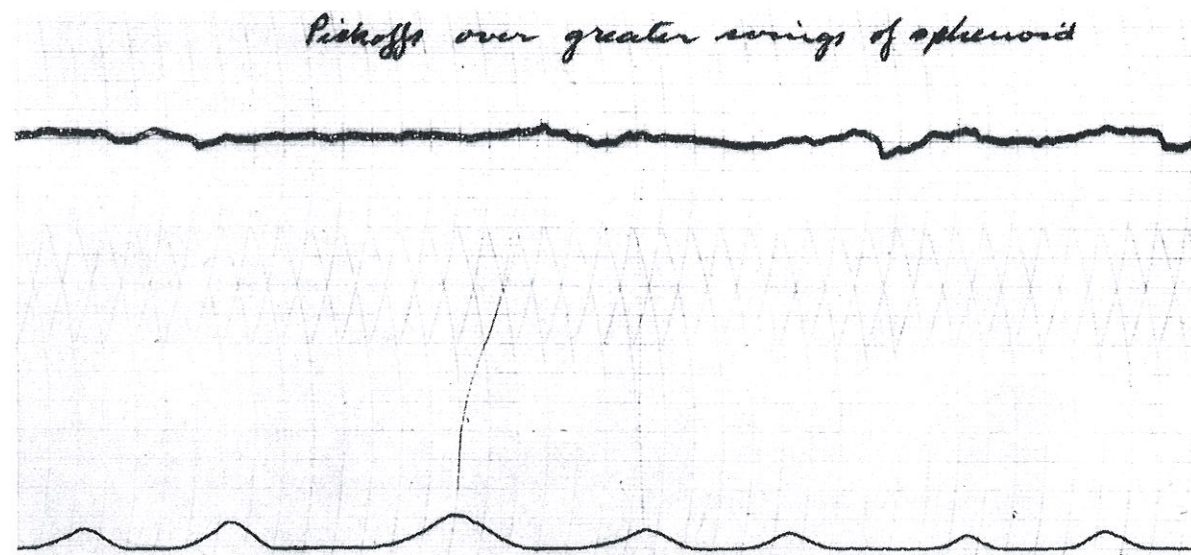 Pickoffs over greater wings of sphenoid